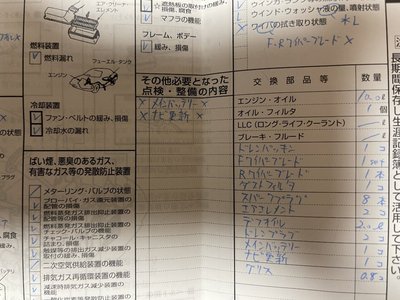 エア・クリーナ・
エレメント
遮熱板の取付けの緩み、
損傷、腐食
マフラの機能
ウインド・ウォッシャ液の量、噴射状態
ワイパの拭き取り状態
F・Rワイパーブレード
フレーム、ボデー
緩み、損傷
燃料装置
燃料漏れ
フューエル・タンク
エンジン
冷却装置
ファン・ベルトの緩み、損傷
冷却水の漏れ
その他必要となった
点検・整備の内容
× メインバッテリー ×
× ナビ更新 ×
ばい煙、悪臭のあるガス、
有害なガス等の発散防止装置
メターリング・バルブの状態
ブローバイ・ガス還元装置の
配管の損傷
燃料蒸発ガス排出抑止装置の
配管等の損傷
燃料蒸発ガス排出抑止装置の
チェック・バルブの機能
チャコール・キャニスタの
詰まり、損傷
触媒等の排出ガス減少装置の
取付の緩み、損傷
二次空気供給装置の機能
排気ガス再循環装置の機能
減速時排気ガス減少装置の
機能
交換部品等 数量
エンジン・オイル
オイル・フィルタ 1 個
LLC(ロング・ライフ・クーラント) L
ブレーキ・フルード
ドレンパッキン 1コ
Fワイパーブレード 1set
Rワイパーブレード 1本
ダストフィルタ 1コ
スパークプラグ 8本
エアエレメント 2コ
メインバッテリー 1コ
ナビ更新 1コ
グリス
長期間保存し生涯記録簿として活用して下さい。